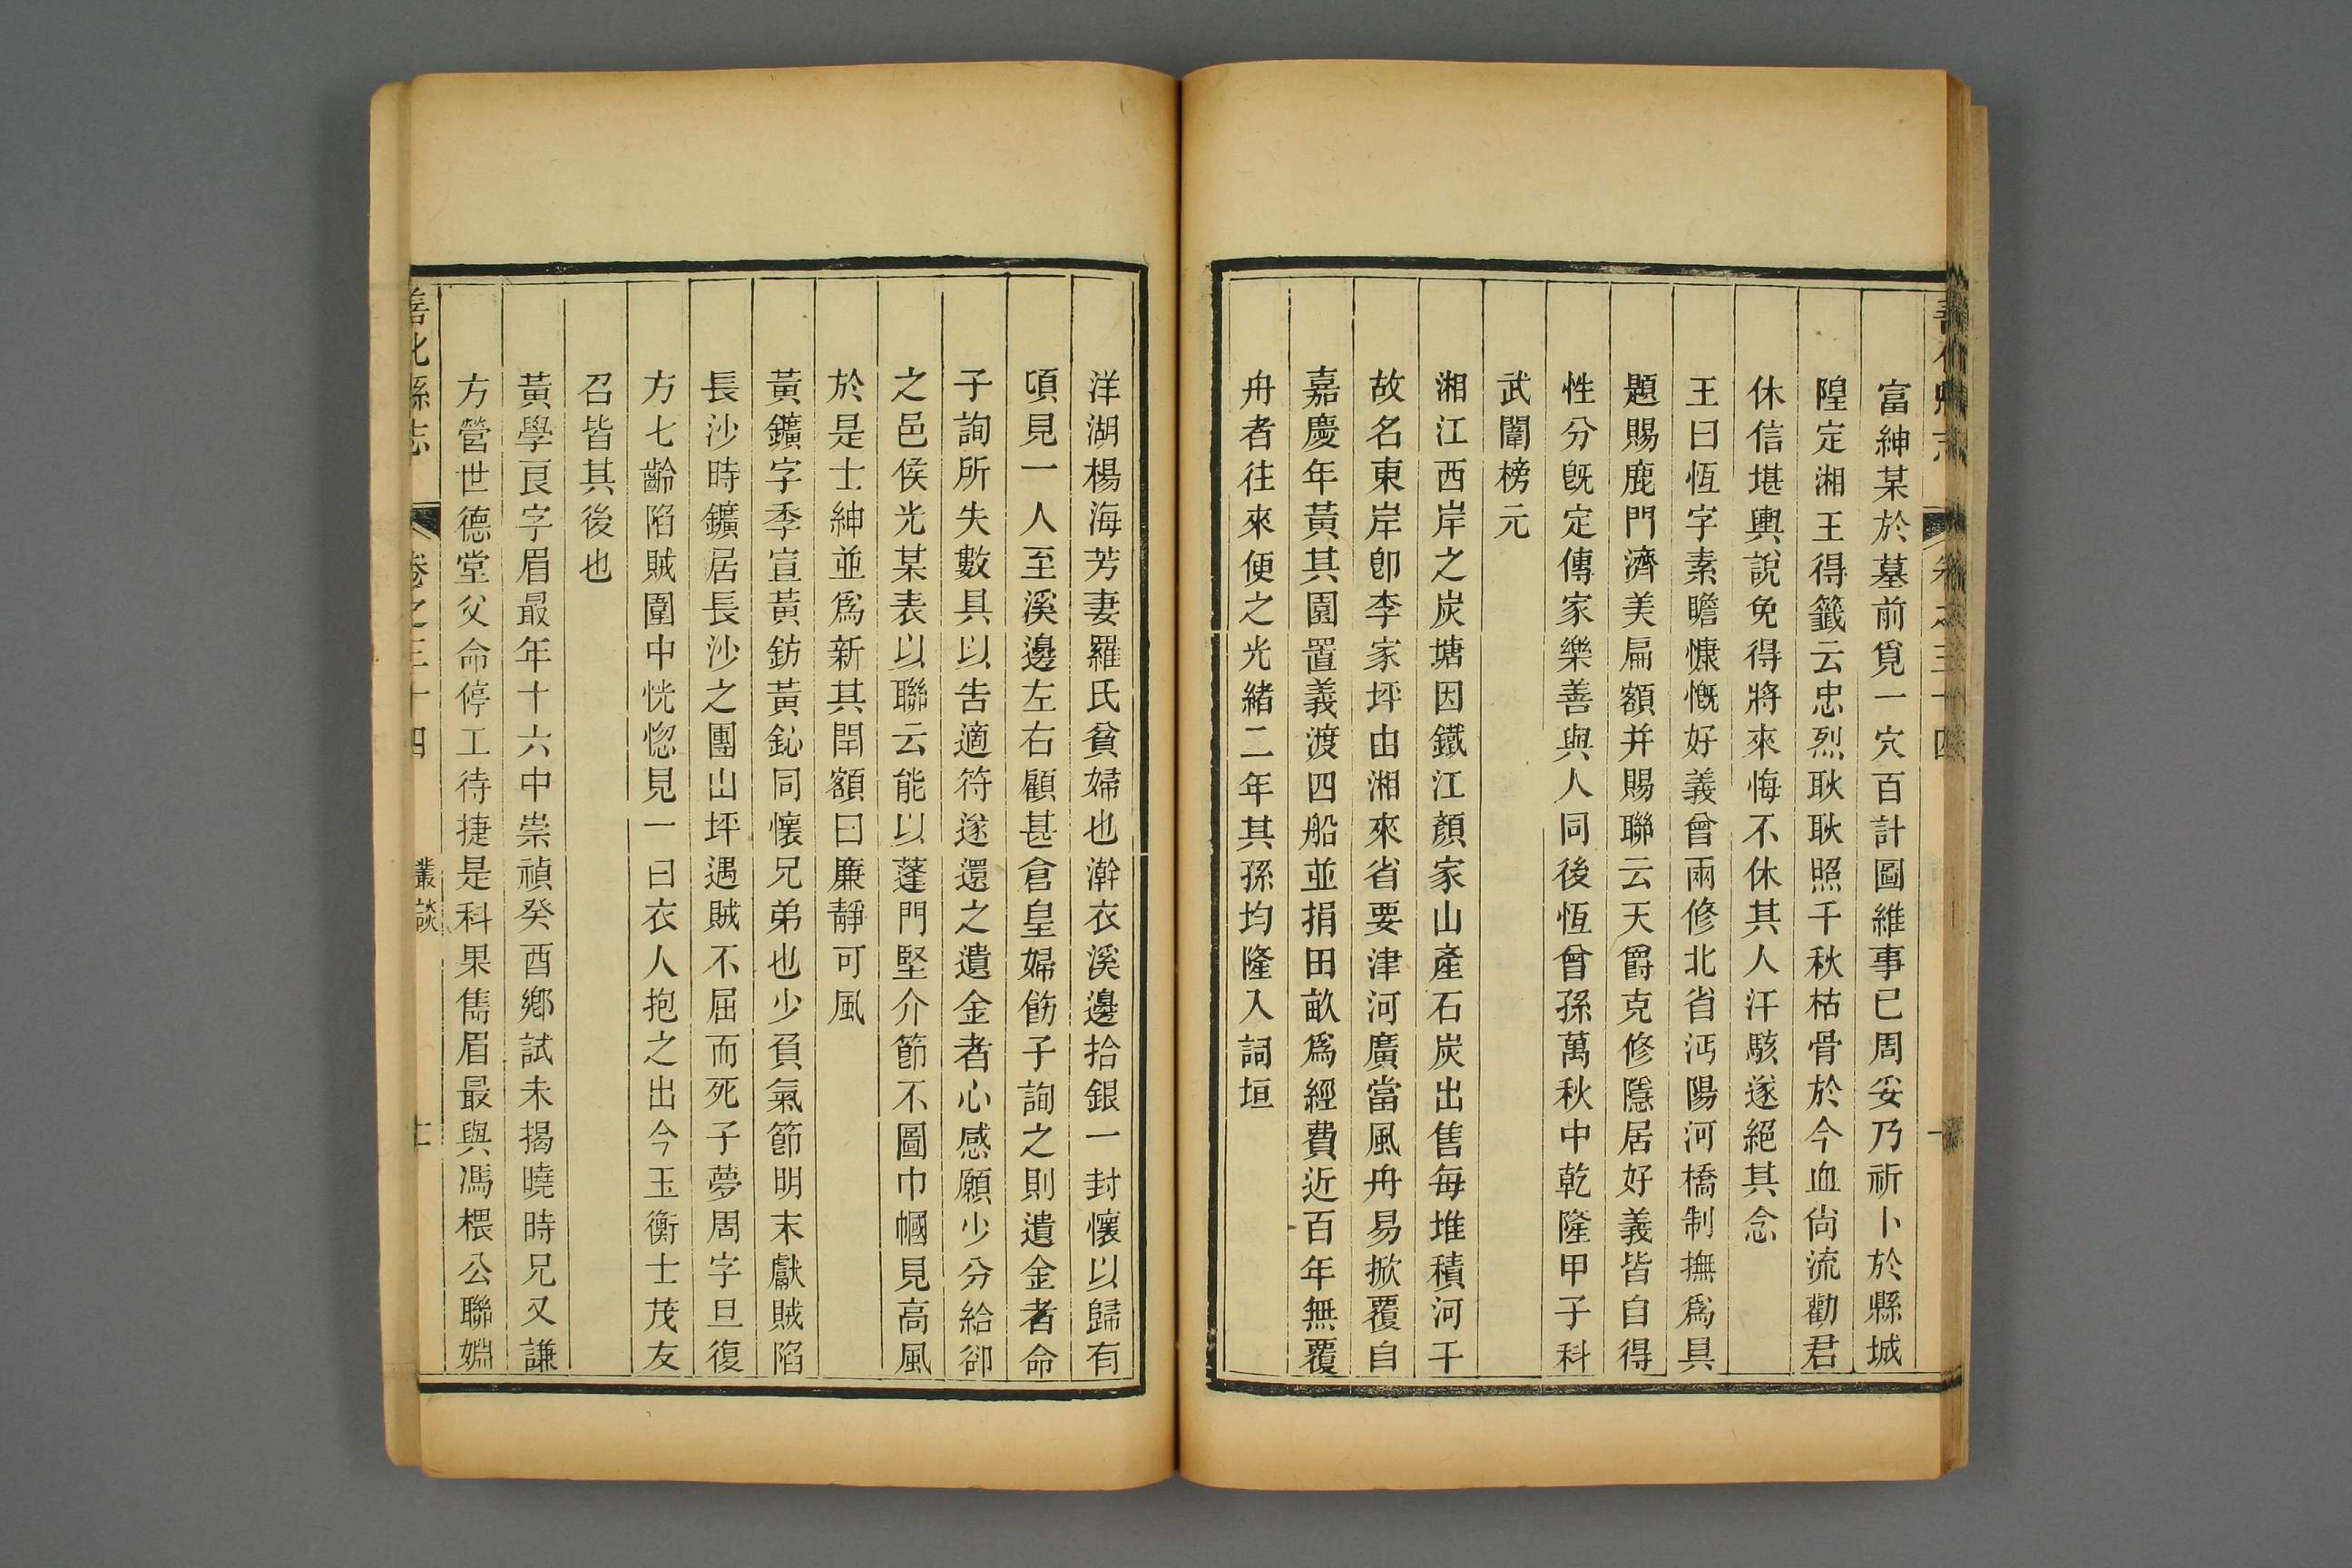 富紳某於墓前覓一穴百計圖維事已周妥乃祈卜於縣城
隍定湘王得籤云忠烈耿耿照千秋枯骨於今血尙流勸君
休信堪輿說免得將來悔不休其人汗駭遂絕其念
王曰恆字素瞻慷慨好義曾兩修北省沔陽河橋制撫爲具
題賜鹿門濟美扁額并賜聯云天爵克修隱居好義皆自得
性分旣定傳家樂善與人同後恆曾孫萬秋中乾隆甲子科
武闈榜元
湘江西岸之炭塘因鐵江顏家山產石炭出售每堆積河干
故名東岸卽李家坪由湘來省要津河廣當風舟易掀覆自
嘉慶年黃其園置義渡四船並捐田畝爲經費近百年無覆
舟者往來便之光緒二年其孫均隆入詞垣
洋湖楊海芳妻羅氏貧婦也澣衣溪邊拾銀一封懷以歸有
頃見一人至溪邊左右顧甚倉皇婦飭子詢之則遺金者命
子詢所失數具以告適符遂還之遺金者心感願少分給卻
之邑侯光某表以聯云能以蓬門堅介節不圖巾幗見高風
於是士紳並爲新其閈額曰廉靜可風
黃鑛字季宣黃鈁黃鈊同懷兄弟也少負氣節明末獻賊陷
長沙時鑛居長沙之團山坪遇賊不屈而死子夢周字旦復
方七齡陷賊圍中恍惚見一白衣人抱之出今玉衡士茂友
召皆其後也
黃學艮字眉最年十六中崇禎癸酉鄉試未揭曉時兄又謙
方營世德堂父命停工待捷是科果雋眉最與馮楒公聯婣
善化縣志 卷之三十四 叢談 十